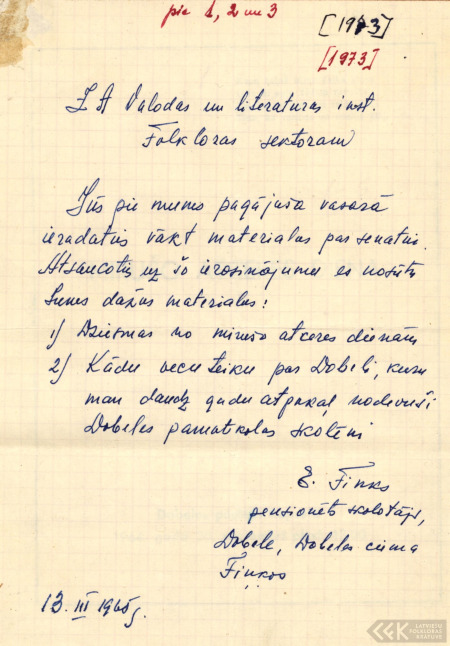 pie 1, 2 un 3
[1973]
[1973]
Z A Valodas un literaturas inst.
Folkloras sektoram
Jūs pie mums pagājušā vasarā
ieradāties vākt materialus par senatni.
Atsaucoties uz šo ierosinājumu es nosūtu
Jums dažus materialus:
1) Dziesmas no mirušo atceres dienām
2) Kādu vecu teiku par Dobeli, kuru
man daudz gadu atpakaļ nodevuši
Dobeles pamatskolas skolēni
E. Finks
pensionēts skolotājs,
Dobele, Dobeles ciema
Fiņķos
13. III 1965 g.
LATVIEŠU
FOLKLORAS
KRĀTUVE